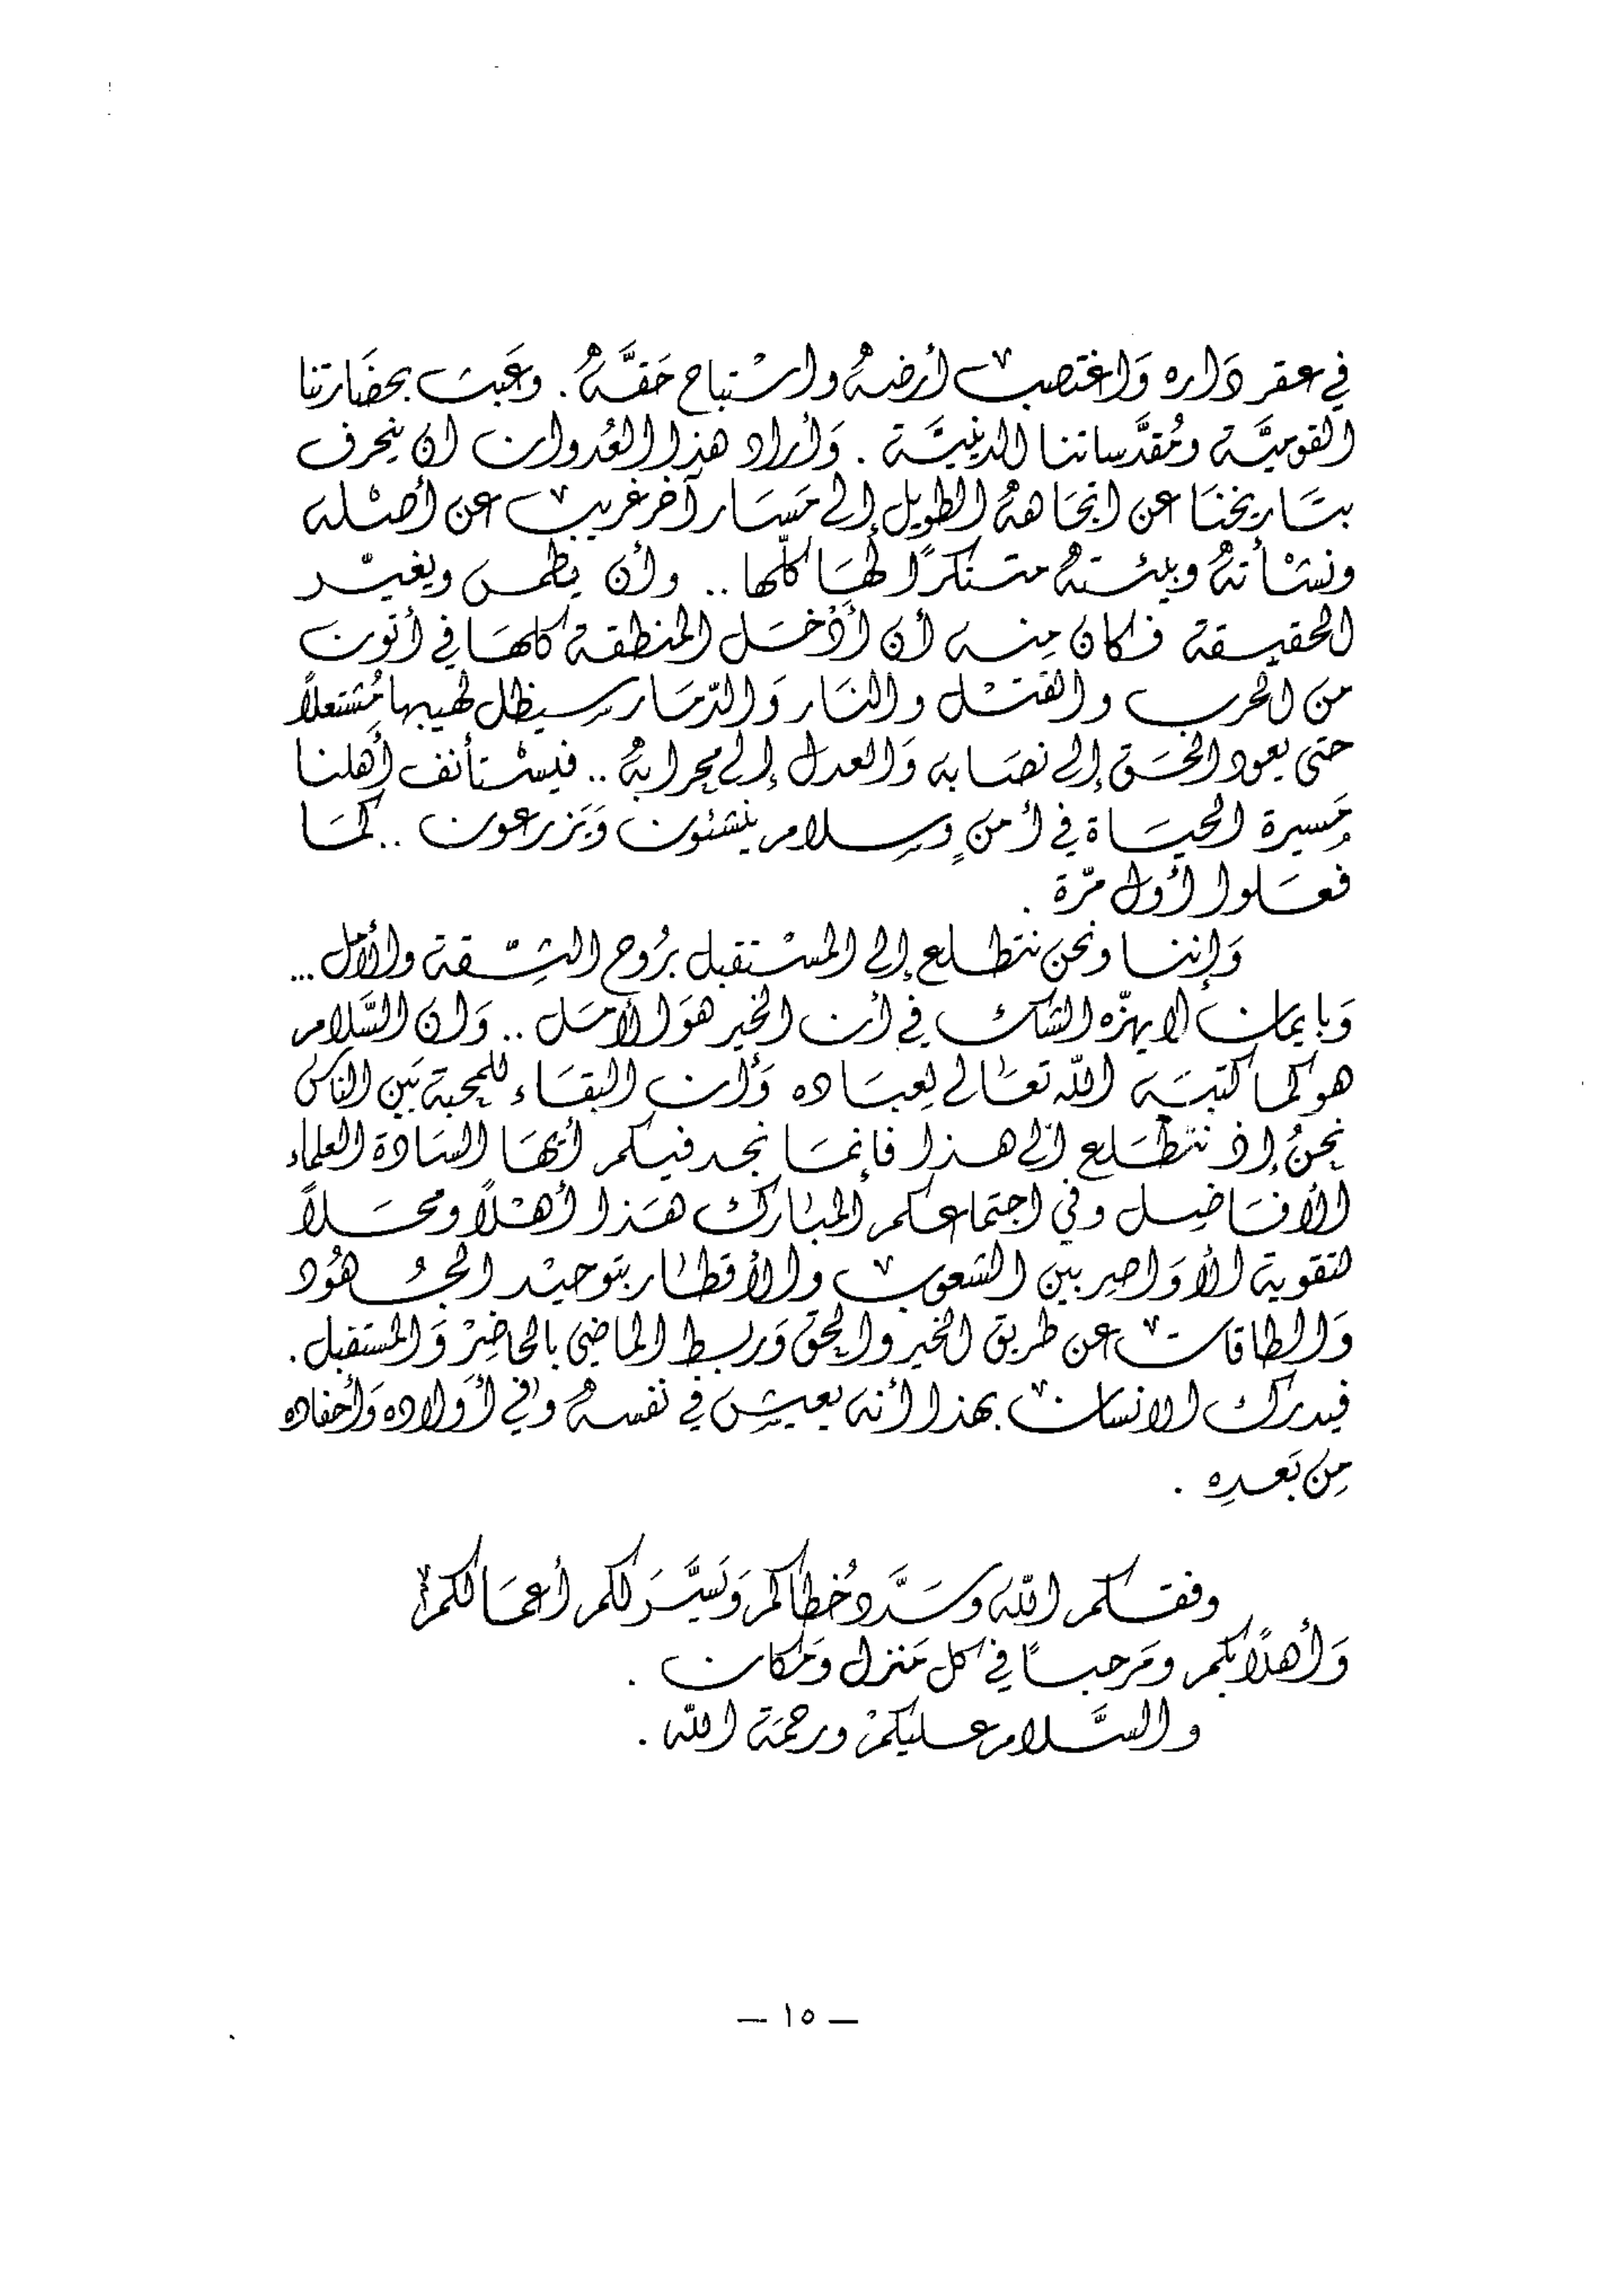 في عقر دَاره وَاغتصب أرضهُ واسْتباح حَقَّهُ . وعَبث بحضَارتنا
القوميَّة ومُقدَّساتنا الدينيَّة . وَأراد هذا العُدوان ان ينحرف
بتَاريخنَا عن اتجَاههُ الطويل إلى مَسَار آخر غريب عن أصْله
ونشْأتهُ وبيئتهُ متنكرًا لهَا كلّها .. وأن يطمس ويغيّر
الحقيقة فكان منه أن أدْخَل المنطقة كلهَا في أتون
من الحرب والقتْل والنَار وَالدّمَار سيظل لهيبها مُشتعلاً
حتى يعود الحَق إلى نصَابه وَالعدل إلى محرابهُ .. فيسْتأنف أهلنا
مَسيرة الحيَاة في أمنٍ وسِلام ينشئون وَيَزرعون .. كمَا
فعَلوا أول مرّة .
وَإننا ونحن نتطلع إلى المسْتقبل برُوح الثِقّة والأمل ...
وَبإيمان لا يهزّه الشك في أن الخير هوَ الأمَل .. وَان السَّلام
هو كما كتبَه الله تعَالى لِعبَاده وَأن البقَاء للمحبة بَين الناس
نحنُ إذ نتطَلع الى هذا فإنمَا نجد فيكم أيهَا السَادة العلماء
الأفَاضِل وفي اجتماعكم المبَارك هَذا أهْلاً ومحَلاً
لتقوية الأوَاصِر بين الشعوب والأقطَار بتوحيْد الجُهُود
وَالطاقات عن طريق الخير والحق وَربط الماضي بالحاضِرْ وَالمستقبل .
فيدرك الانسان بهذا أنه يعيش في نفسهُ وفي أوَلاده وَأحفاده
مِن بَعدِه .
وفقكم الله وسَدَّد خُطاكم وَيَسَّرَ لكم أعمَالكم
وَأهلاً بكم ومَرحباً في كل مَنزل وَمَكان .
والسَّلام عليكمْ ورحمَة الله .
— ١٥ —